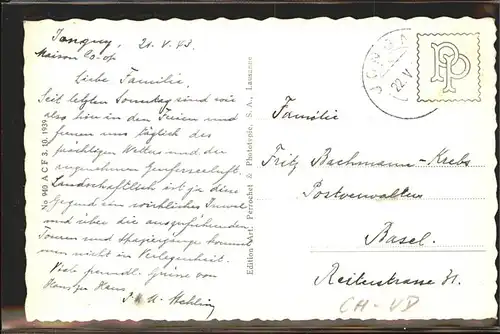 Jongny, 21. V. 43.
Maison Co-op
Liebe Familie,
Seit letzten Sonntag sind wir
also hier in den Ferien und
freuen uns täglich des
prächtigen Wetters und der
angenehmen Genferseeluft.
Landschaftlich ist ja diese
Gegend ein wirkliches Juwel
und über die auszuführenden
Touren und Spaziergänge kommt
man nicht in Verlegenheit.
Viele freundl. Grüsse von
Haus zu Haus
No 949 A C F 3. 10. 1939
Edition Art. Perrochet & Phototypie, S. A., Lausanne
JONGNY
22. V
PP
Familie
Fritz Bachmann-Krebs
Postverwalter
Basel.
Reiterstrasse 31.
CH-VD